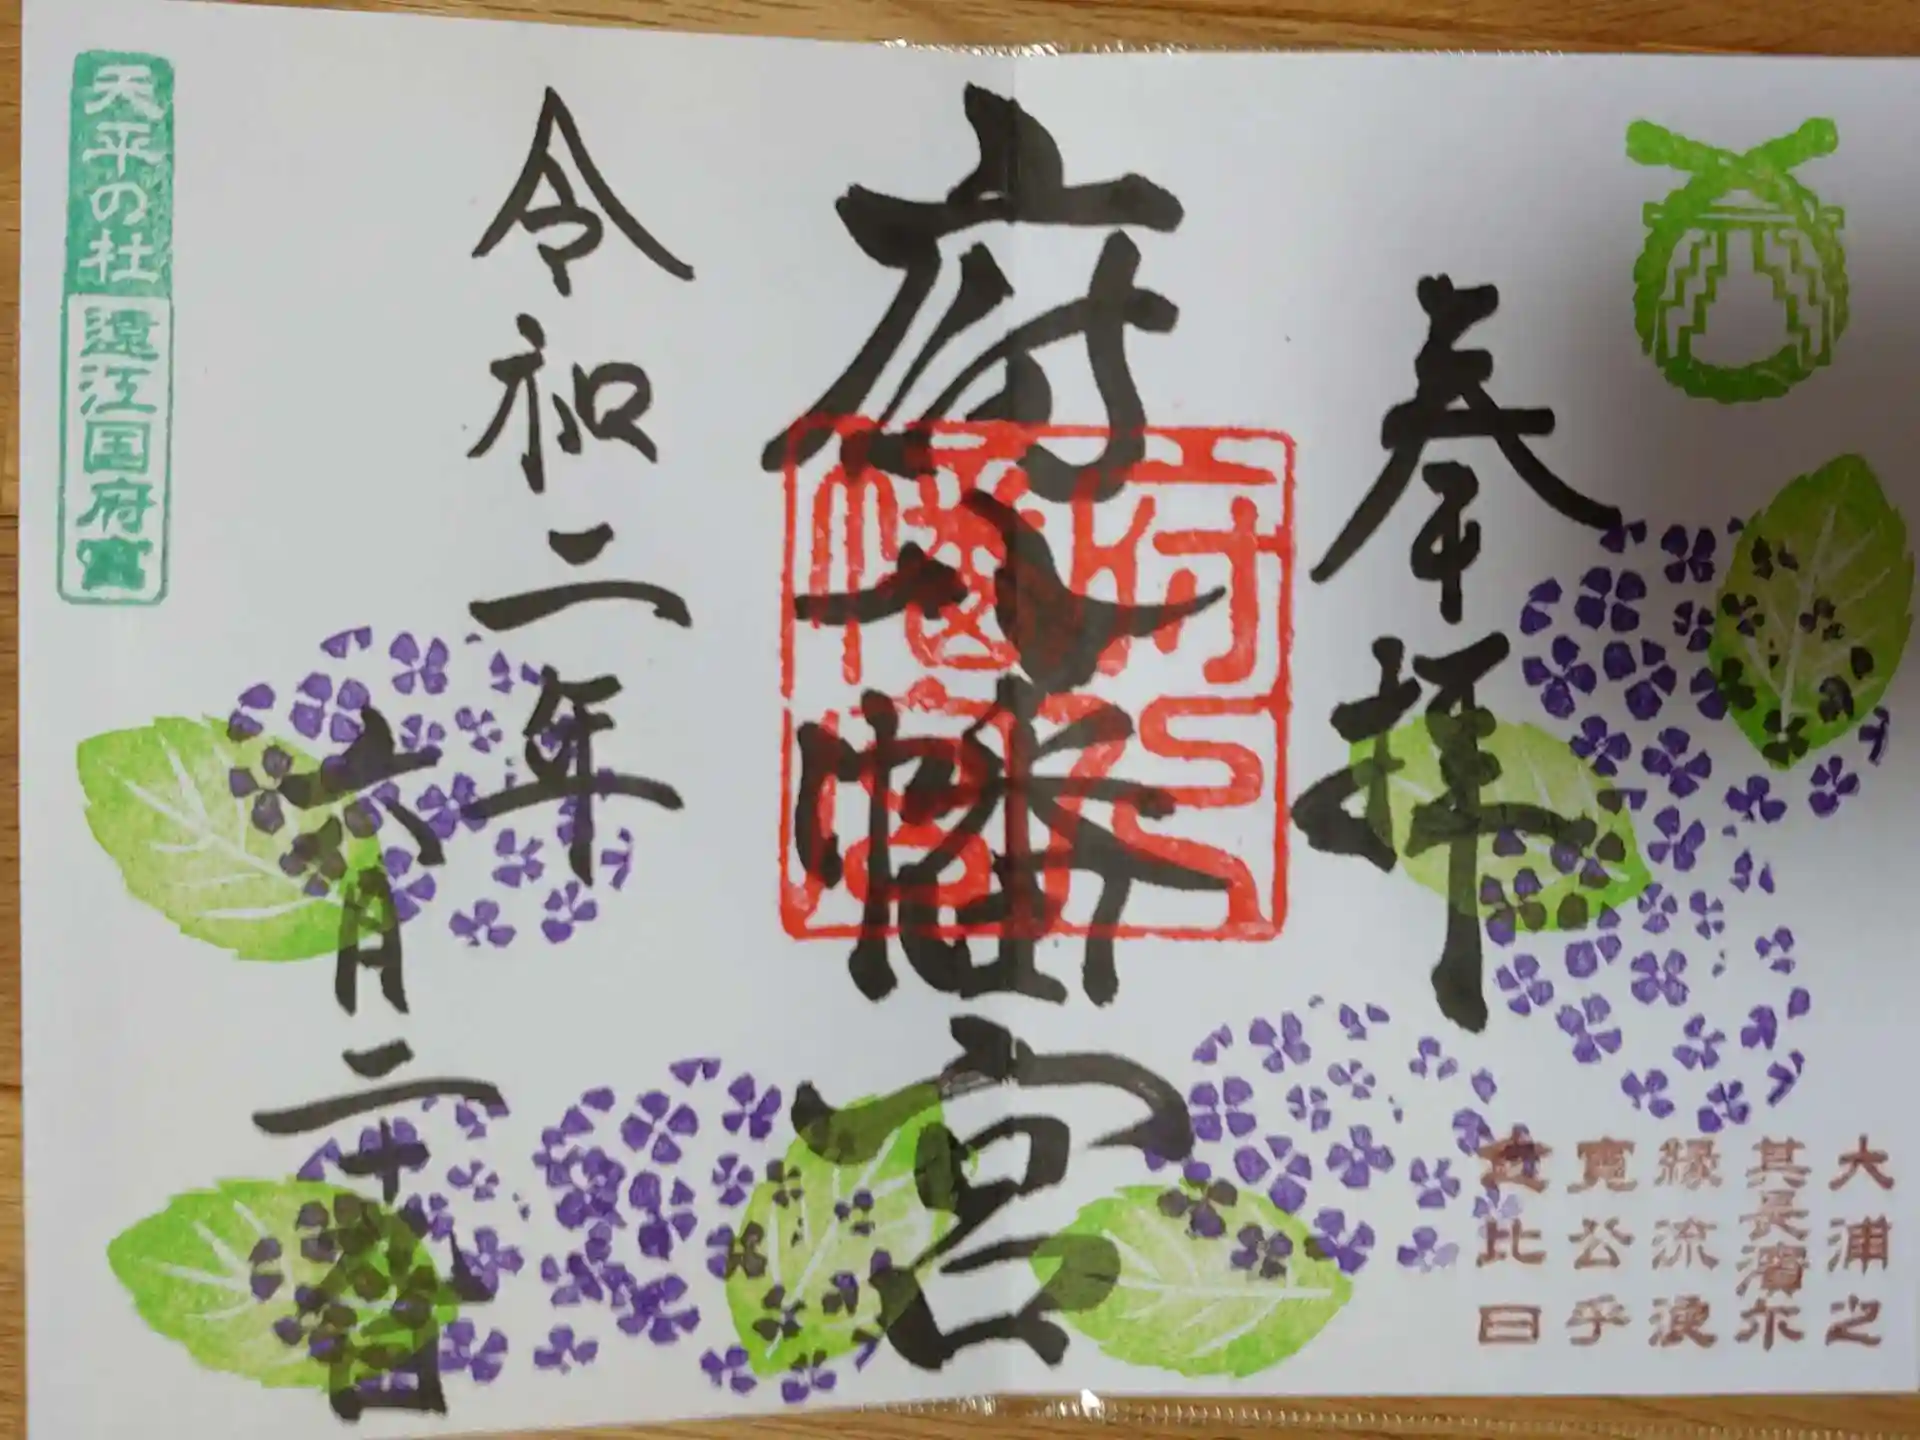 奉拝
府八幡宮
府八幡宮
令和二年
六月二十八日
天平の杜
遠江国府宮
大浦之
其長濱尓
縁流浪
寛公乎
念比日